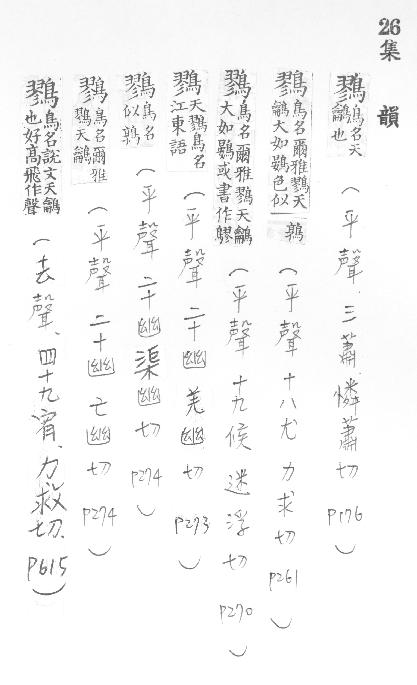 26集 韻
鷚鳥名天鸙也（平聲 三蕭 憐蕭切 P176）
鷚鳥名爾雅鷚天鸙大如鷃色似鶉（平聲 十八尤 力求切 P261）
鷚鳥名爾雅鷚天鸙大如鷃或書作䴏（平聲 十九侯 迷浮切 P270）
鷚天鷚鳥名江東語（平聲 二十幽 羌幽切 P273）
鷚鳥名似鶉（平聲 二十幽 渠幽切 P274）
鷚鳥名爾雅鷚天鸙（平聲 二十幽 亡幽切 P274）
鷚鳥名說文天鸙也好高飛作聲（去聲、四十九宥、力救切、P615）